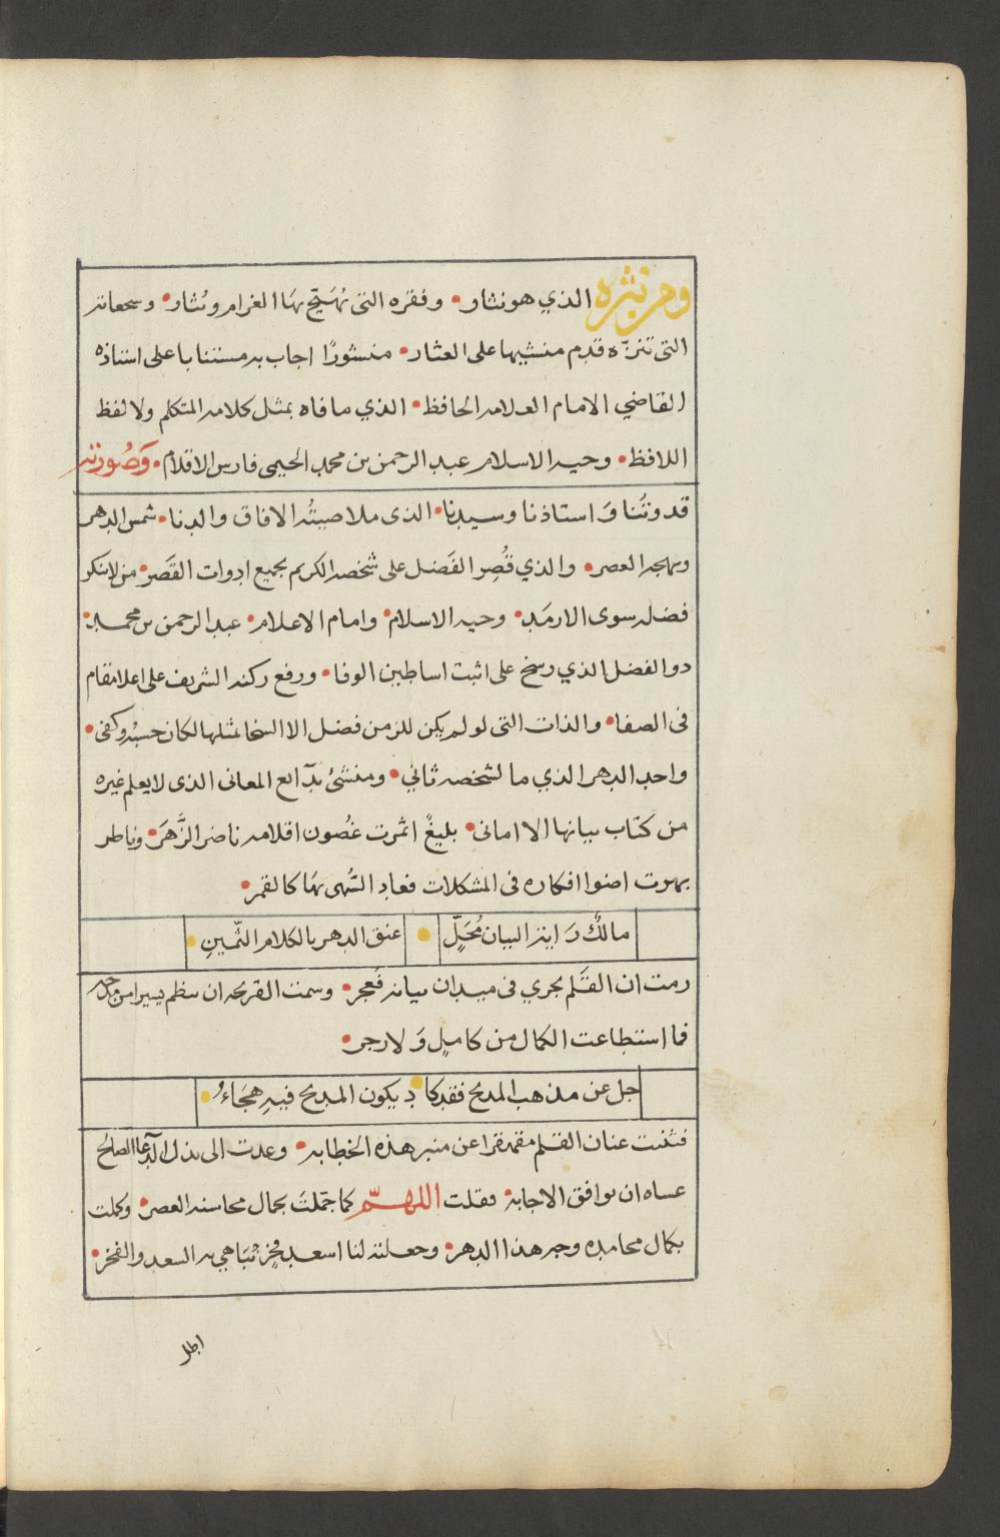 ومن نثره الذي هو نثار • وفقره التى تُهَيّج بهَا الغرام وتُثار • وسجعاته
التى تنزّه قدم منشيها على العثار • منشورًا اجاب به مستنابا على استاذه
القاضي الامام العلامه الحافظ • الذي ما فاه بمثل كلامه المتكلم ولا لفظ
اللافظ • وحيه الاسلام عبد الرحمن بن محمد الحيمى فارس الاقلام • وَصُورته
قدوتَنا وَاستاذنا وسيدنا • الذى ملا صيتُه الافاق والدنا • شمس الدهر
وبهجه العصر • والذي قُصِر الفَضل على شخصه الكريم بجميع ادوات القَصر • من لا ينكر
فضله سوى الارمَد • وحيه الاسلام • وامام الاعلام • عبد الرحمن بن محمد •
ذو الفضل الذي رسخ على اثبت اساطين الوفا • ورفع ركنه الشريف على اعلا مقام
فى الصفا • والذات التى لو لم يكن للزمن فضل الا السخا بمثلها لكان حسبُه وكفى •
واحد الدهر الذي ما لشخصه ثاني • ومنشئ بدَآئع المعانى الذى لا يعلم غيره
من كتاب بيانها الا امانى • بليغٌ اثمرت غصُون اقلامه ناضر الزَّهَر • وناظر
بهرت اضوا افكاره فى المشكلات فعاد السُهى بهَا كالقمر •
مالكٌ رَاية البيان مُحَلٍّ • عنق الدهر بالكلام الثّمينِ •
رمت ان القَلم يجري فى ميدان بيانه فعجز • وسمت القريحه ان تنظم يسيرا من مدحه
فما استطاعت الكمال من كامِلٍ وَلا رجز •
جل عن مذهب المدح فقد كا • دَ يكون المديح فيهِ هجَاءُ •
فثنيت عنان القلم مقهقرا عن منبر هذه الخطابه • وعدت الى بذل الدّعا الصالح
عساه ان يوافق الاجابهْ • فقلت اللهـمّ كما جمّلتَ بجمال محاسنه العصر • وكملت
بكمال محامده وجه هذا الدهر • وجعلته لنا اسعد فخرٍ نُبَاهي به السعد والفخر •
اطل